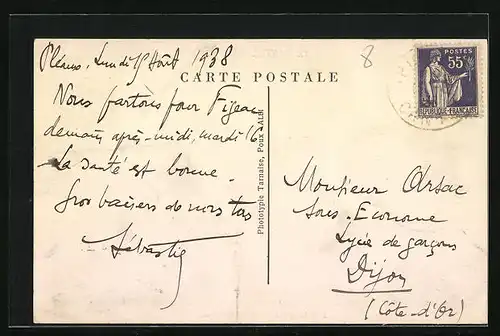 Lundi 15 Août 1938
8
CARTE POSTALE
Nous partons pour Figeac
demain après-midi, mardi 16
La santé est bonne.
Gros baisers de nous tous
Sébastien
Phototypie Tarnaise, Poux - Albi
POSTES
55c
REPUBLIQUE FRANÇAISE
Monsieur Arsac
Sous-Econome
Lycée de garçons
Dijon
(Côte-d'Or)